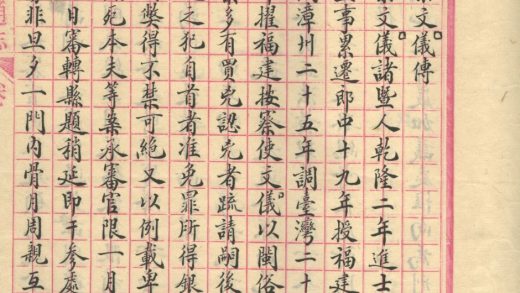 文儀傳
文儀諸暨人乾隆二年進士
事累遷郎中十九年授福建
漳州二十五年調臺灣二十
擢福建按察使文儀以閩俗
多有買兇認兇者疏請嗣後
之犯自首者准免罪所得銀
獎得不禁可絶又以例載卑
死本夫等案承審官限一月
日審轉縣題稍延即干參處
非旦夕一門內骨月周親互
通志